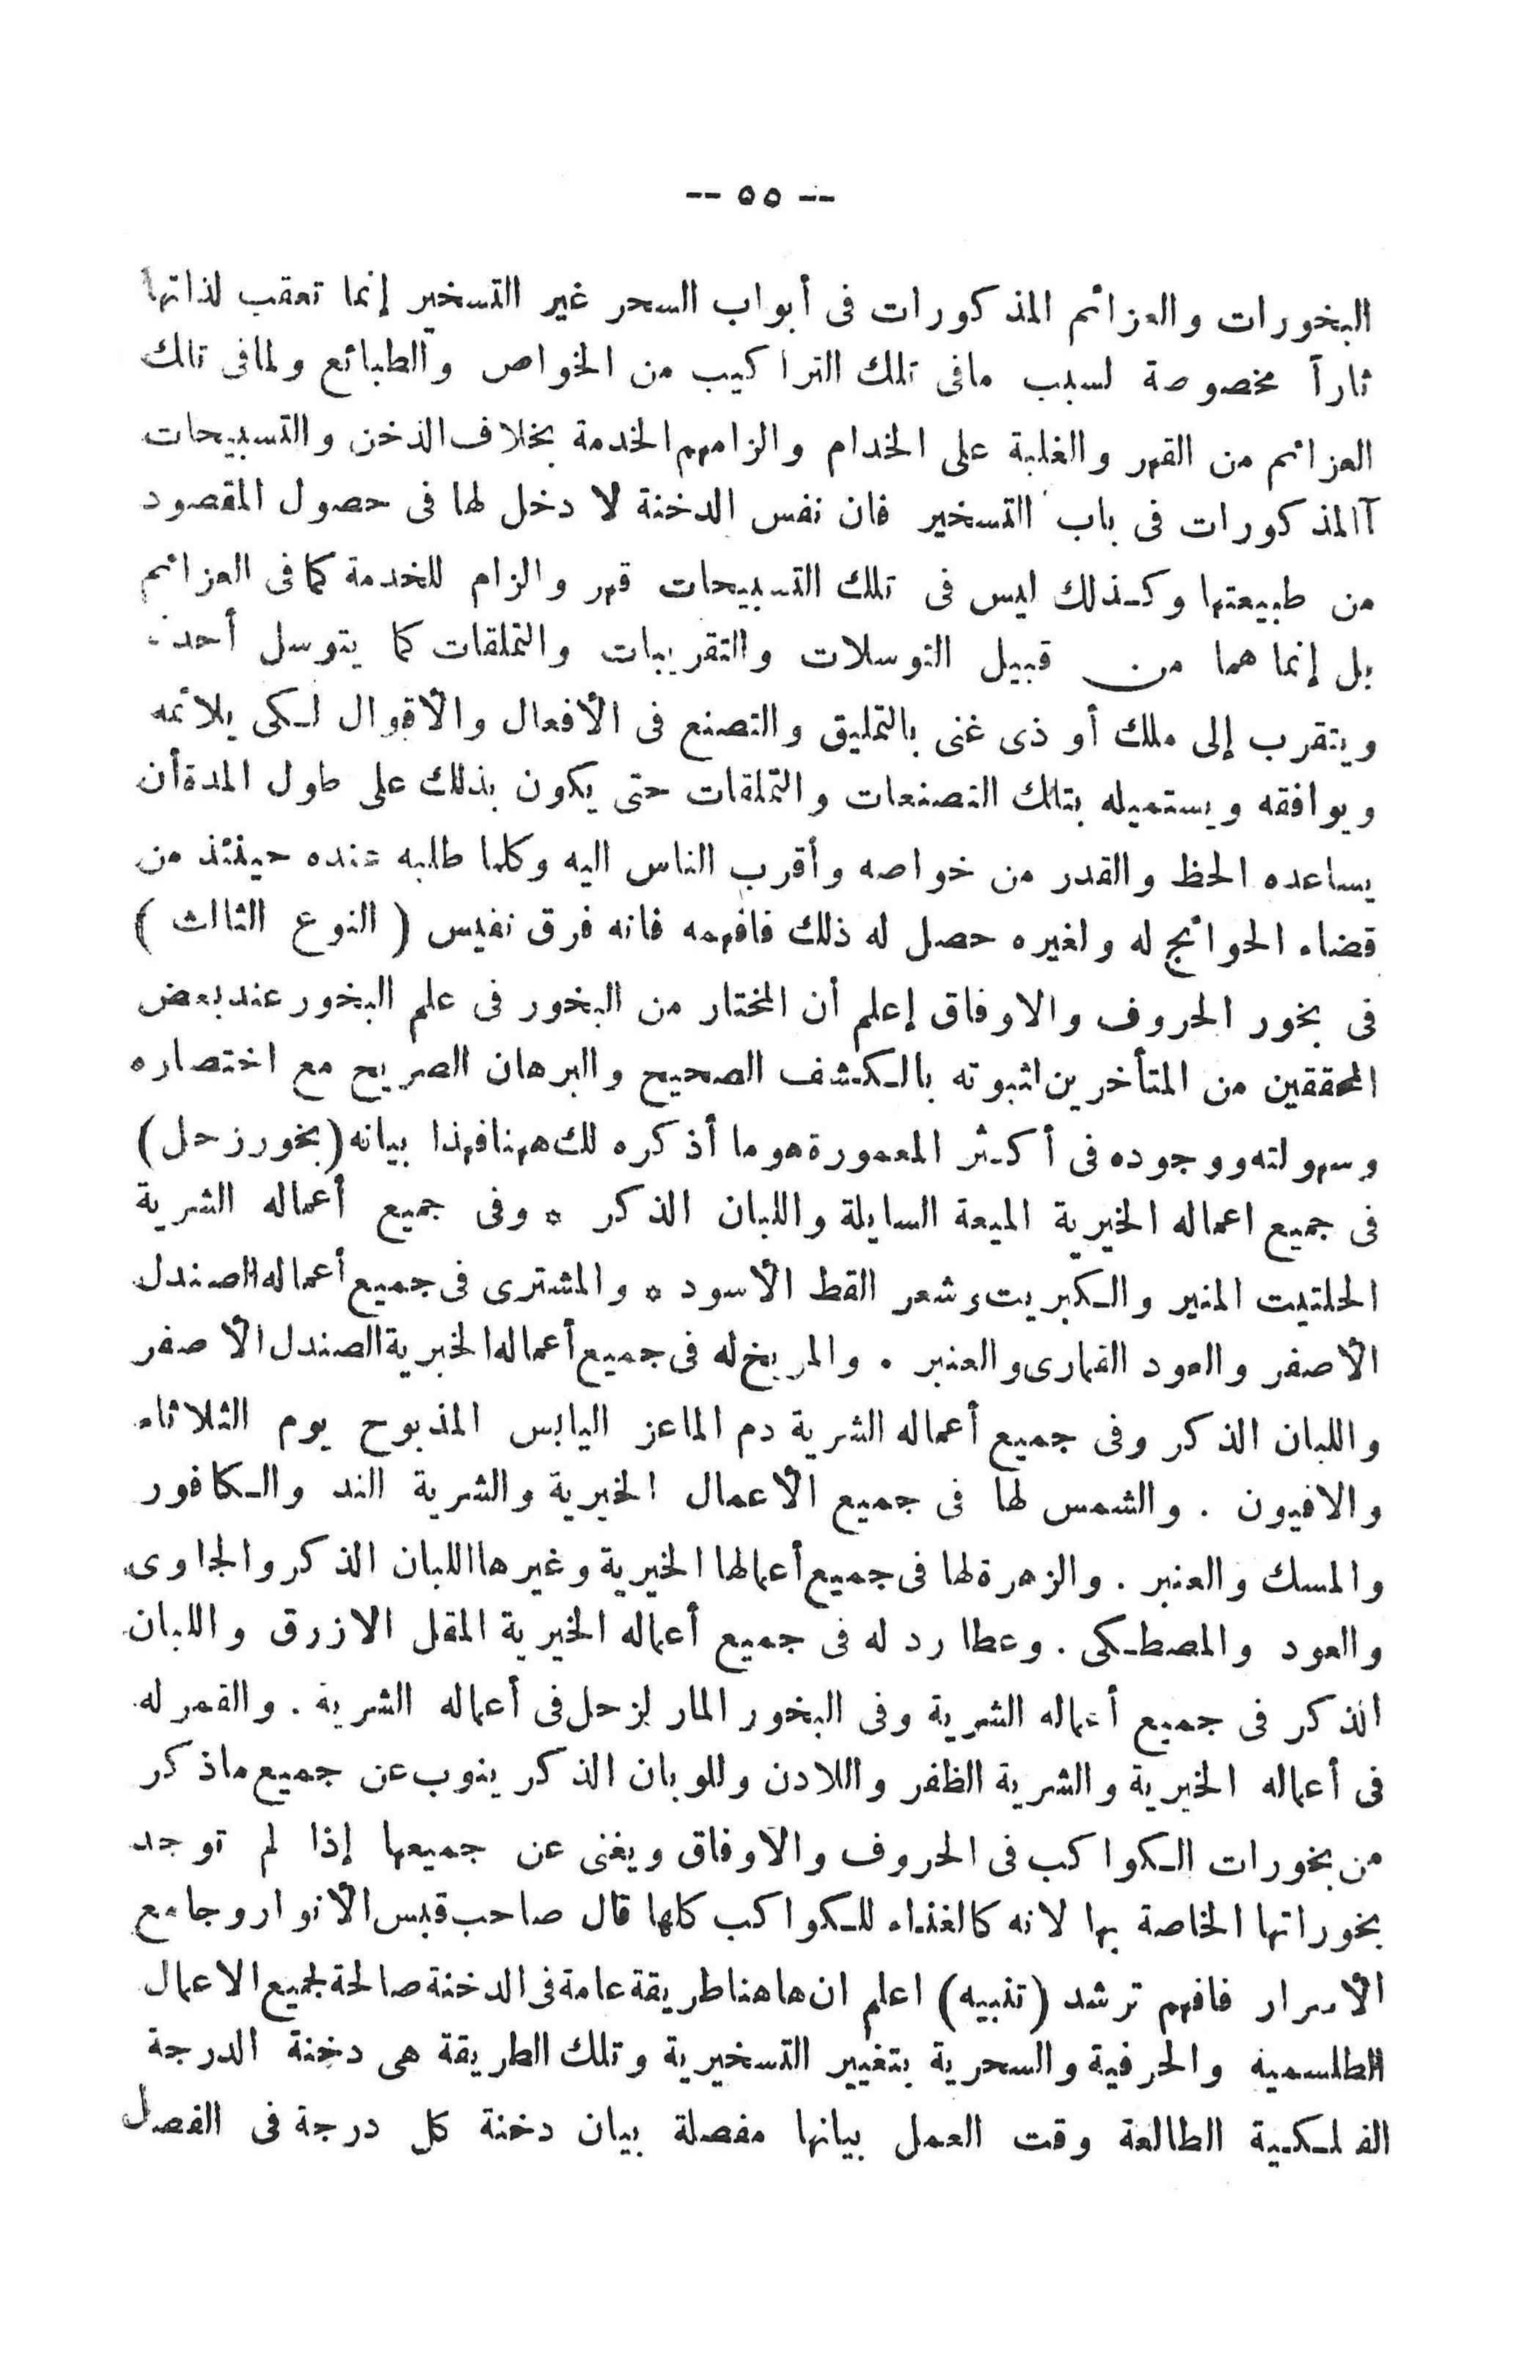 -- ٥٥ --
البخورات والعزائم المذكورات فى أبواب السحر غير التسخير إنما تعقب لذاتها
ثاراً مخصوصة لسبب مافى تلك التراكيب من الخواص والطبائع ولمافى تلك
العزائم من القهر والغلبة على الخدام والزامهم الخدمة بخلاف الدخن والتسبيحات
آالمذكورات فى باب التسخير فان نفس الدخنة لا دخل لها فى حصول المقصود
من طبيعتها وكذلك ليس فى تلك التسبيحات قهر والزام للخدمة كمافى العزائم
بل إنما هما من قبيل التوسلات والتقريبات والتملقات كما يتوسل أحد
ويتقرب إلى ملك أو ذى غنى بالتمليق والتصنع فى الأفعال والأقوال لكى يلائمه
ويوافقه ويستميله بتلك التصنعات والتملقات حتى يكون بذلك على طول المدة أن
يساعده الحظ والقدر من خواصه وأقرب الناس اليه وكلما طلبه عنده حينئذ من
قضاء الحوائج له ولغيره حصل له ذلك فافهمه فانه فرق نفيس ( النوع الثالث )
فى بخور الحروف والاوفاق إعلم أن المختار من البخور فى علم البخور عند بعض
المحققين من المتأخرين اثبوته بالكشف الصحيح والبرهان الصريح مع اختصاره
وسهولته ووجوده فى أكثر المعمورة هو ما أذكره لك ههنا فهذا بيانه (بخور زحل)
فى جميع اعماله الخيرية الميعة السايلة واللبان الذكر * وفى جميع أعماله الشرية
الحلتيت المنير والكبريت وشعر القط الأسود * والمشترى فى جميع أعماله الصندل
الأصفر والعود القمارى والعنبر . والمريخ له فى جميع أعماله الخيرية الصندل الأصفر
واللبان الذكر وفى جميع أعماله الشرية دم الماعز اليابس المذبوح يوم الثلاثاء
والافيون . والشمس لها فى جميع الأعمال الخيرية والشرية الند والكافور
والمسك والعنبر . والزهرة لها فى جميع أعمالها الخيرية وغيرها اللبان الذكر والجاوى
والعود والمصطكى . وعطارد له فى جميع أعماله الخيرية المقل الازرق واللبان
الذكر فى جميع أعماله الشرية وفى البخور المار لزحل فى أعماله الشرية . والقمر له
فى أعماله الخيرية والشرية الظفر واللادن وللوبان الذكر ينوب عن جميع ماذكر
من بخورات الكواكب فى الحروف والأوفاق ويغنى عن جميعها إذا لم توجد
بخوراتها الخاصة بها لانه كالغذاء للكواكب كلها قال صاحب قبس الأنوار وجامع
الأسرار فافهم ترشد (تنبيه) اعلم ان هاهنا طريقة عامة فى الدخنة صالحة لجميع الاعمال
الطلسمية والحرفية والسحرية بتغيير التسخيرية وتلك الطريقة هى دخنة الدرجة
الفلكية الطالعة وقت العمل بيانها مفصلة بيان دخنة كل درجة فى الفصل